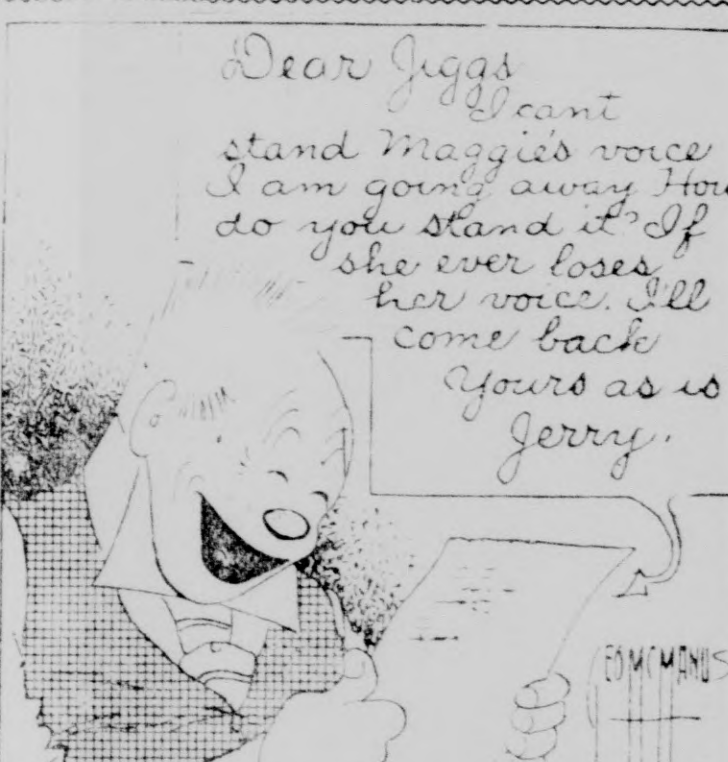 Dear Jiggs
I cant
stand Maggie's voice
I am going away How
do you stand it? If
she ever loses
her voice. I'll
come back
Yours as is
Jerry.
MCMANUS